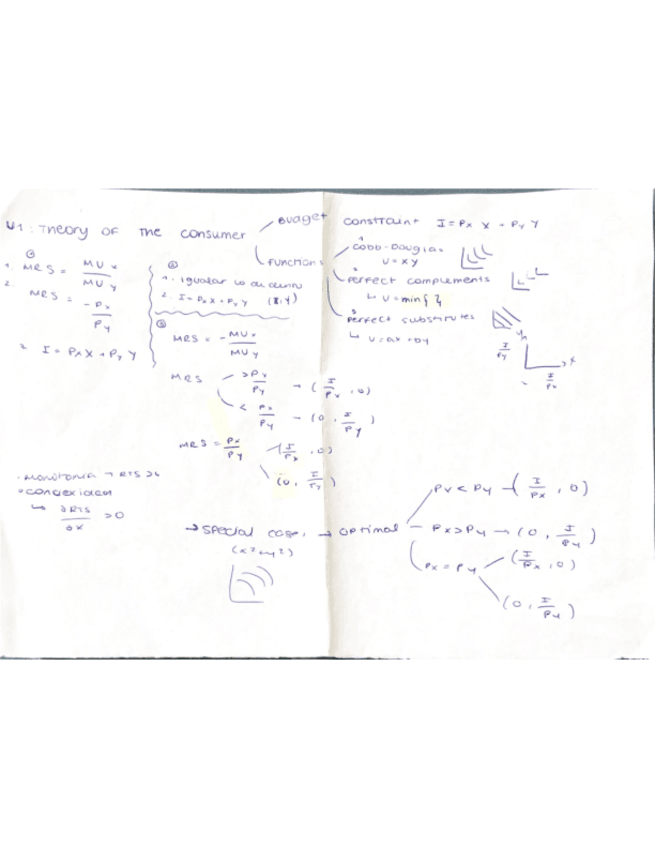 U1: Theory of the consumer
Budget constraint I = Px X + Py Y
Functions
1 Cobb-Douglas
U = xy
2 Perfect complements
↳ U = min { }
3 Perfect substitutes
↳ U = ax + by
①
1. MRS = MUx / MUy
2. MRS = -Px / Py
2. I = Px X + Py Y
②
1. Igualar
2. I = Px X + Py Y (X, Y)
③
MRS = - MUx / MUy
MRS
> Px / Py → (I / Px, 0)
< Px / Py → (0, I / Py)
MRS = Px / Py
(I / Px, 0)
(0, I / Py)
I / Py
y
x
I / Px
· Monotonia → RTS
· convexidad
↳ ∂RTS / ∂x > 0
→ Special case → optimal
(x² + y²)
Px < Py → (I / Px, 0)
Px > Py → (0, I / Py)
Px = Py
(I / Px, 0)
(0, I / Py)